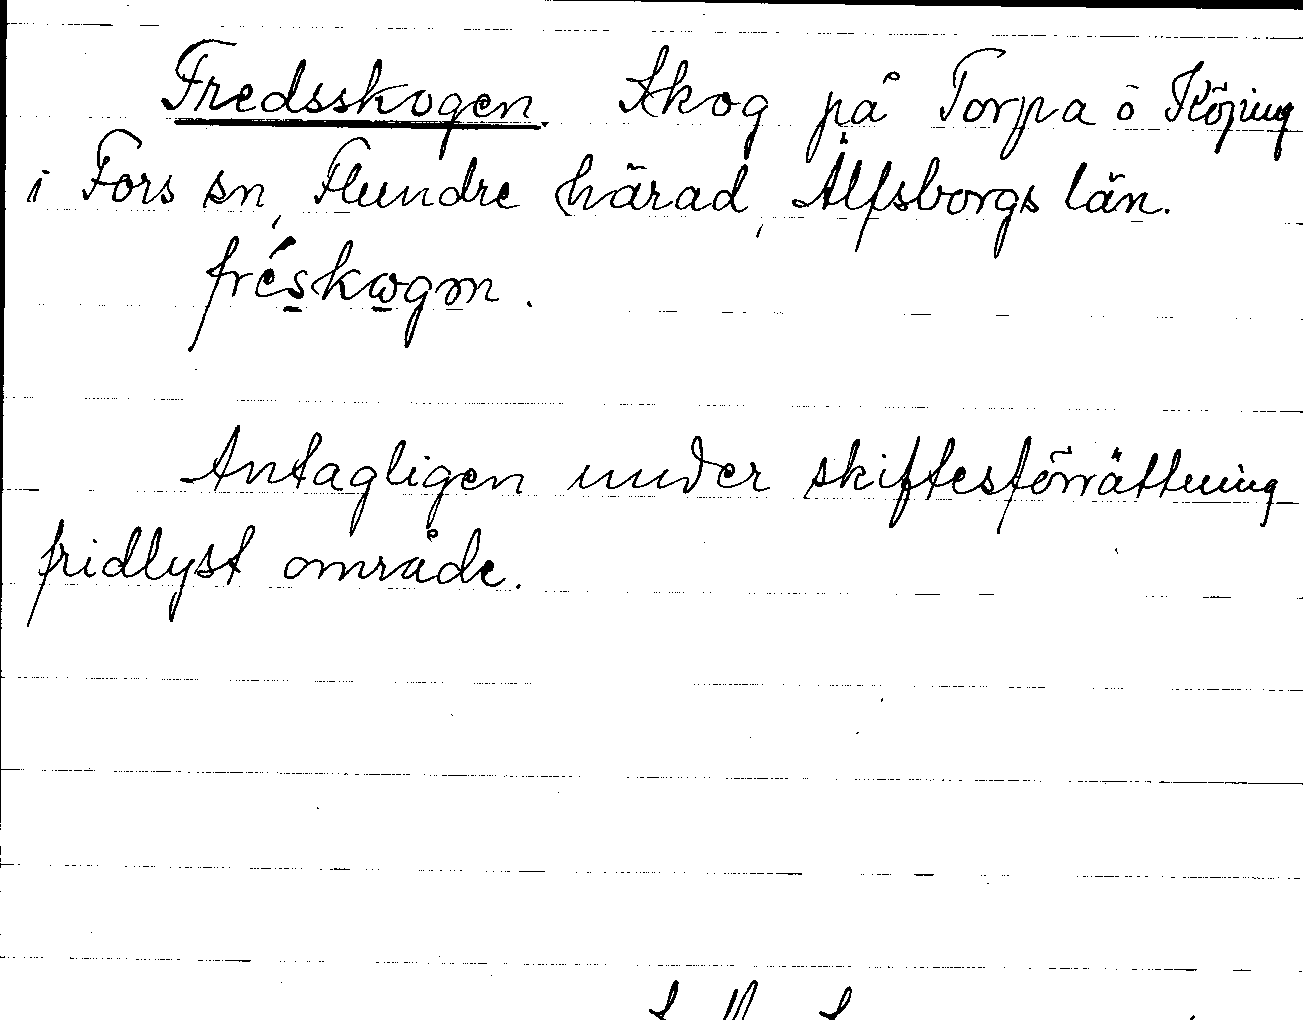 Fredsskogen. Skog på Torpa o Köping
i Fors sn, Flundre härad, Älfsborgs län.
fréskωgm.
Antagligen under skiftesförrättning
fridlyst område.